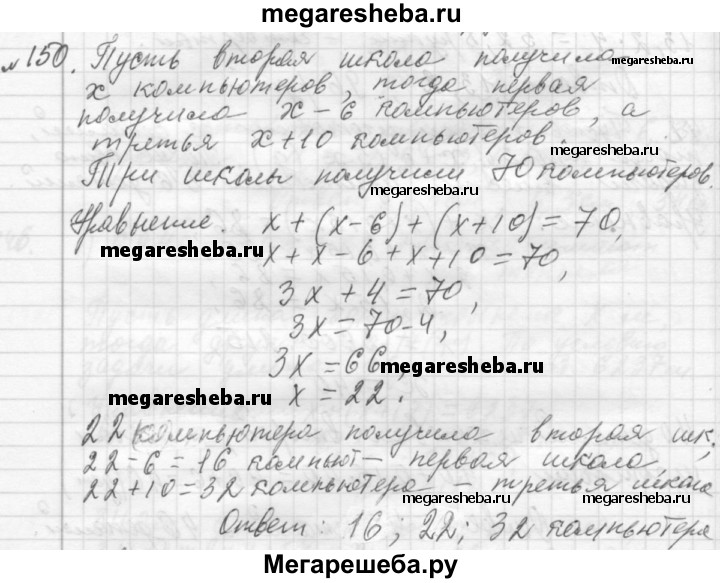 megaresheba.ru
№150. Пусть вторая школа получила
х компьютеров, тогда первая
megaresheba.ru
получила х-6 компьютеров, а
третья х+10 компьютеров.
megaresheba.ru
Три школы получили 70 компьютеров.
megaresheba.ru
Уравнение. х+(х-6)+(х+10)=70,
megaresheba.ru
х+х-6+х+10=70,
3х+4=70,
3х=70-4,
3х=66,
megaresheba.ru
megaresheba.ru
х=22.
22 компьютера получила вторая шк.
22-6=16 компьют- первая школа
megaresheba.ru
22+10=32 компьютера - третья школа
megaresheba.ru
megaresheba.ru
Ответ: 16, 22; 32 компьютера
Мегарешеба.ру